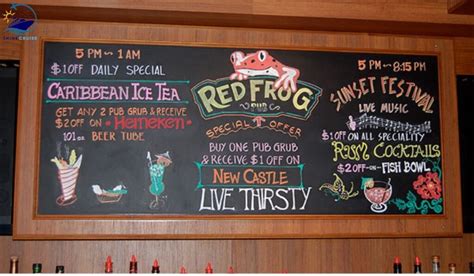 5 PM ~ 1 AM
$1 OFF DAILY SPECIAL
CARIBBEAN ICE TEA
GET ANY 2 PUB GRUB & RECEIVE
$2 OFF ON ★ Heineken ★
101 oz BEER TUBE
RED FROG
PUB
SPECIAL OFFER
BUY ONE PUB GRUB
& RECEIVE $1 OFF ON
NEW CASTLE
LIVE THIRSTY
5 PM - 8:15 PM
SUNSET FESTIVAL
LIVE MUSIC
$1 OFF ON ALL SPECIALITY
RUM COCKTAILS
$2 OFF ON - FISH BOWL